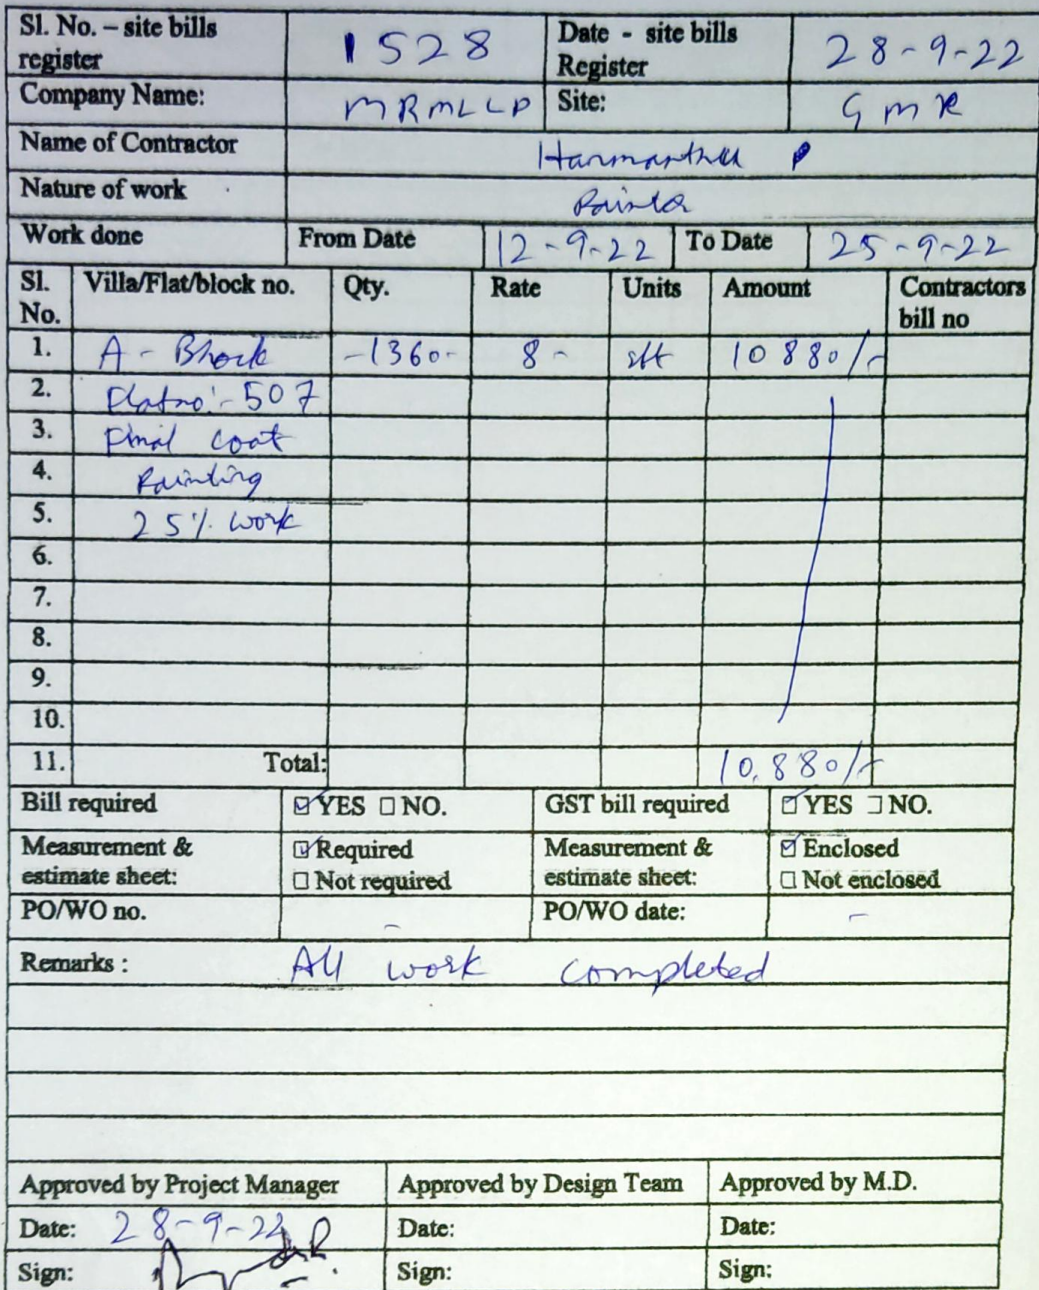 Sl. No. – site bills register 1528 Date - site bills Register 28-9-22
Company Name: MRMLLP Site: GMR
Name of Contractor
Nature of work Painter
Work done From Date 12-9-22 To Date 25-9-22
Sl. No. Villa/Flat/block no. Qty. Rate Units Amount Contractors bill no
1. A - Block -1360- 8- sft 10880/-
2. Flatno:- 507
3. Final coat
4. Painting
5. 25% work
6.
7.
8.
9.
10.
11. Total: 10,880/-
Bill required ☑ YES ☐ NO. GST bill required ☑ YES ☐ NO.
Measurement & estimate sheet: ☑ Required ☐ Not required Measurement & estimate sheet: ☑ Enclosed ☐ Not enclosed
PO/WO no. - PO/WO date: -
Remarks : All work completed
Approved by Project Manager Approved by Design Team Approved by M.D.
Date: 28-9-22 Date: Date:
Sign: Sign: Sign: